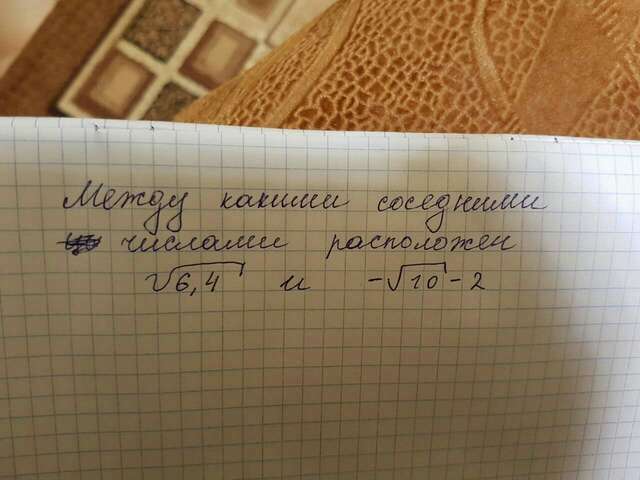 Между какими соседними
числами расположен
√6,4 и -√10 - 2